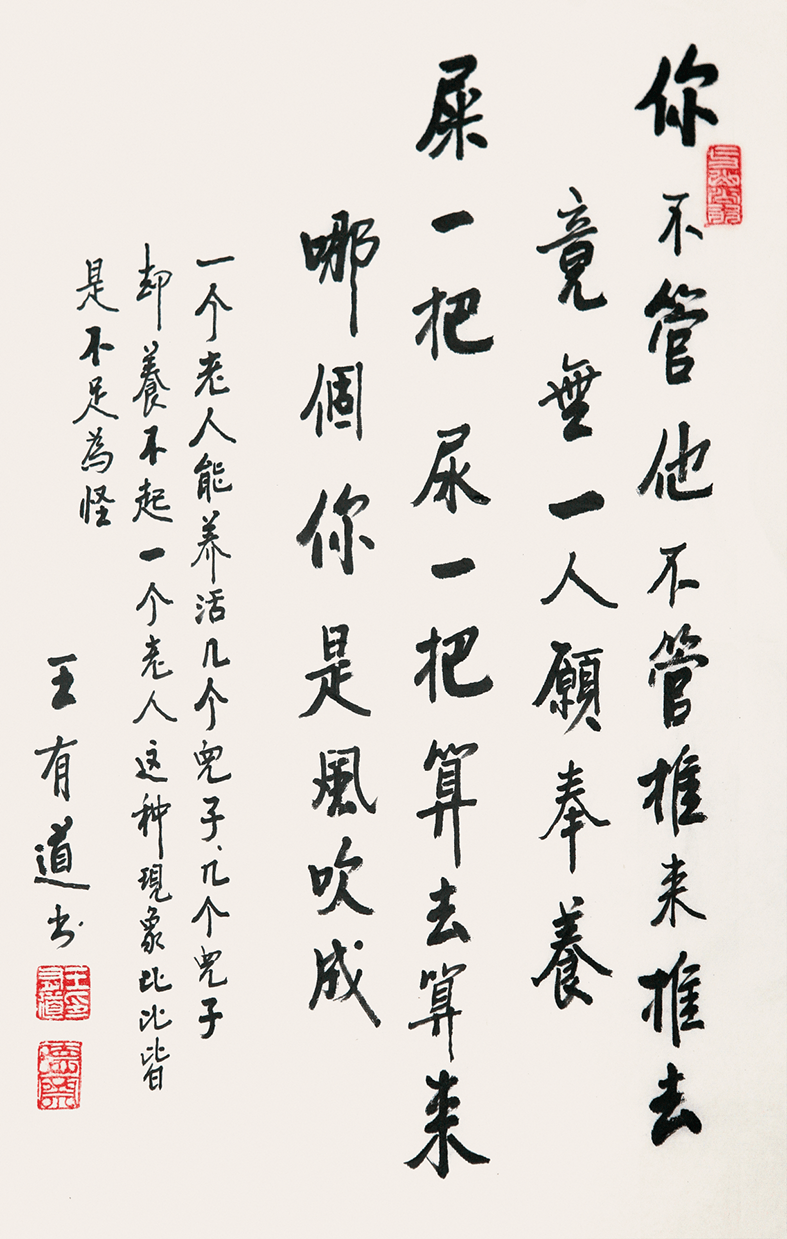 你不管他不管推来推去
竟無一人願奉養
屎一把尿一把算去算来
哪個你是風吹成
一个老人能养活几个兒子、几个兒子
却養不起一个老人这种現象比比皆
是不足為怪
王有道书